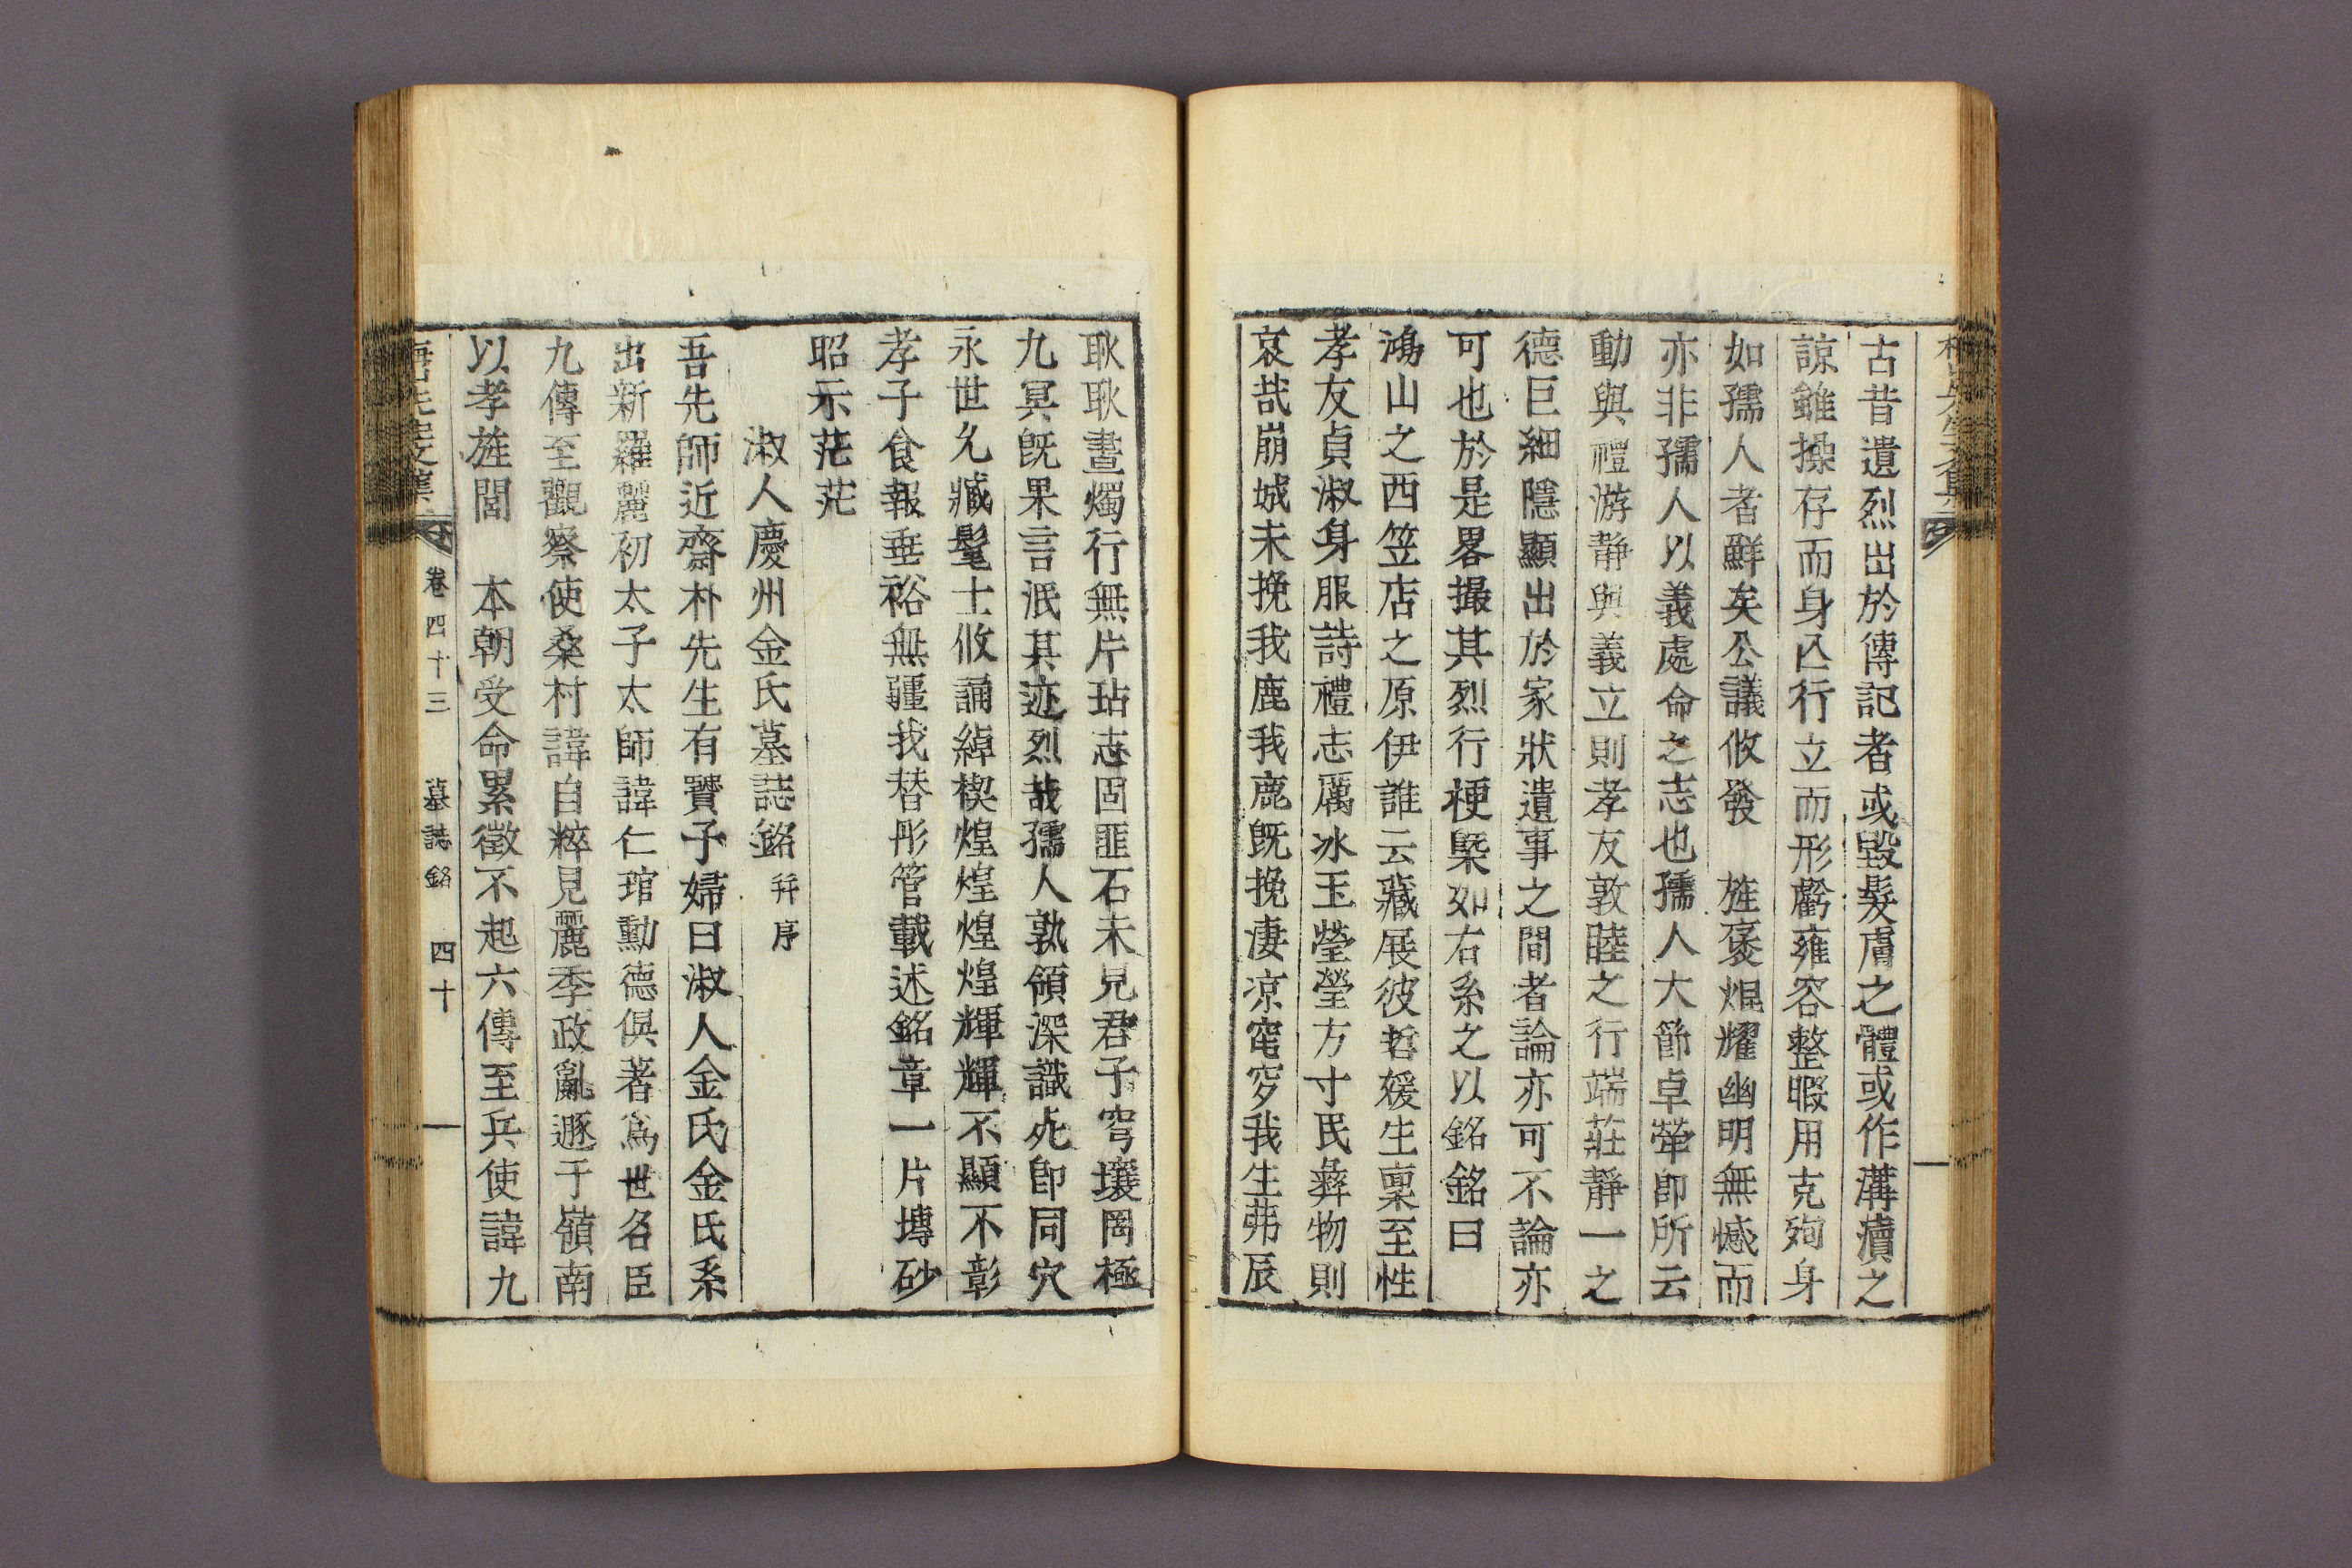 古昔遺烈出於傳記者或毀髮膚之體或作溝瀆之
諒雖操存而身亾行立而形虧雍容整暇用克殉身
如孺人者鮮矣公議攸發　旌褒焜耀幽明無憾而
亦非孺人以義處命之志也孺人大節卓犖卽所云
動與禮游靜與義立則孝友敦睦之行端莊靜一之
德巨細隱顯出於家狀遺事之間者論亦可不論亦
可也於是畧撮其烈行梗槩如右系之以銘銘曰
鴻山之西笠店之原伊誰云藏展彼哲媛生稟至性
孝友貞淑身服詩禮志厲冰玉瑩瑩方寸民彝物則
哀哉崩城未挽我鹿我鹿旣挽淒凉窀穸我生弗辰
耿耿晝燭行無片玷志固匪石未見君子穹壤罔極
九冥旣果言泯其迹烈哉孺人孰領深識死卽同穴
永世允臧髦士攸誦綽楔煌煌煌煌輝輝不顯不彰
孝子食報垂裕無疆我替彤管載述銘章一片塼砂
昭示茫茫
淑人慶州金氏墓誌銘幷序
吾先師近齋朴先生有賢子婦曰淑人金氏金氏系
出新羅麗初太子太師諱仁琯勳德俱著爲世名臣
九傳至觀察使桑村諱自粹見麗季政亂遯于嶺南
以孝旌閭　本朝受命累徵不起六傳至兵使諱九
卷四十三　墓誌銘　四十